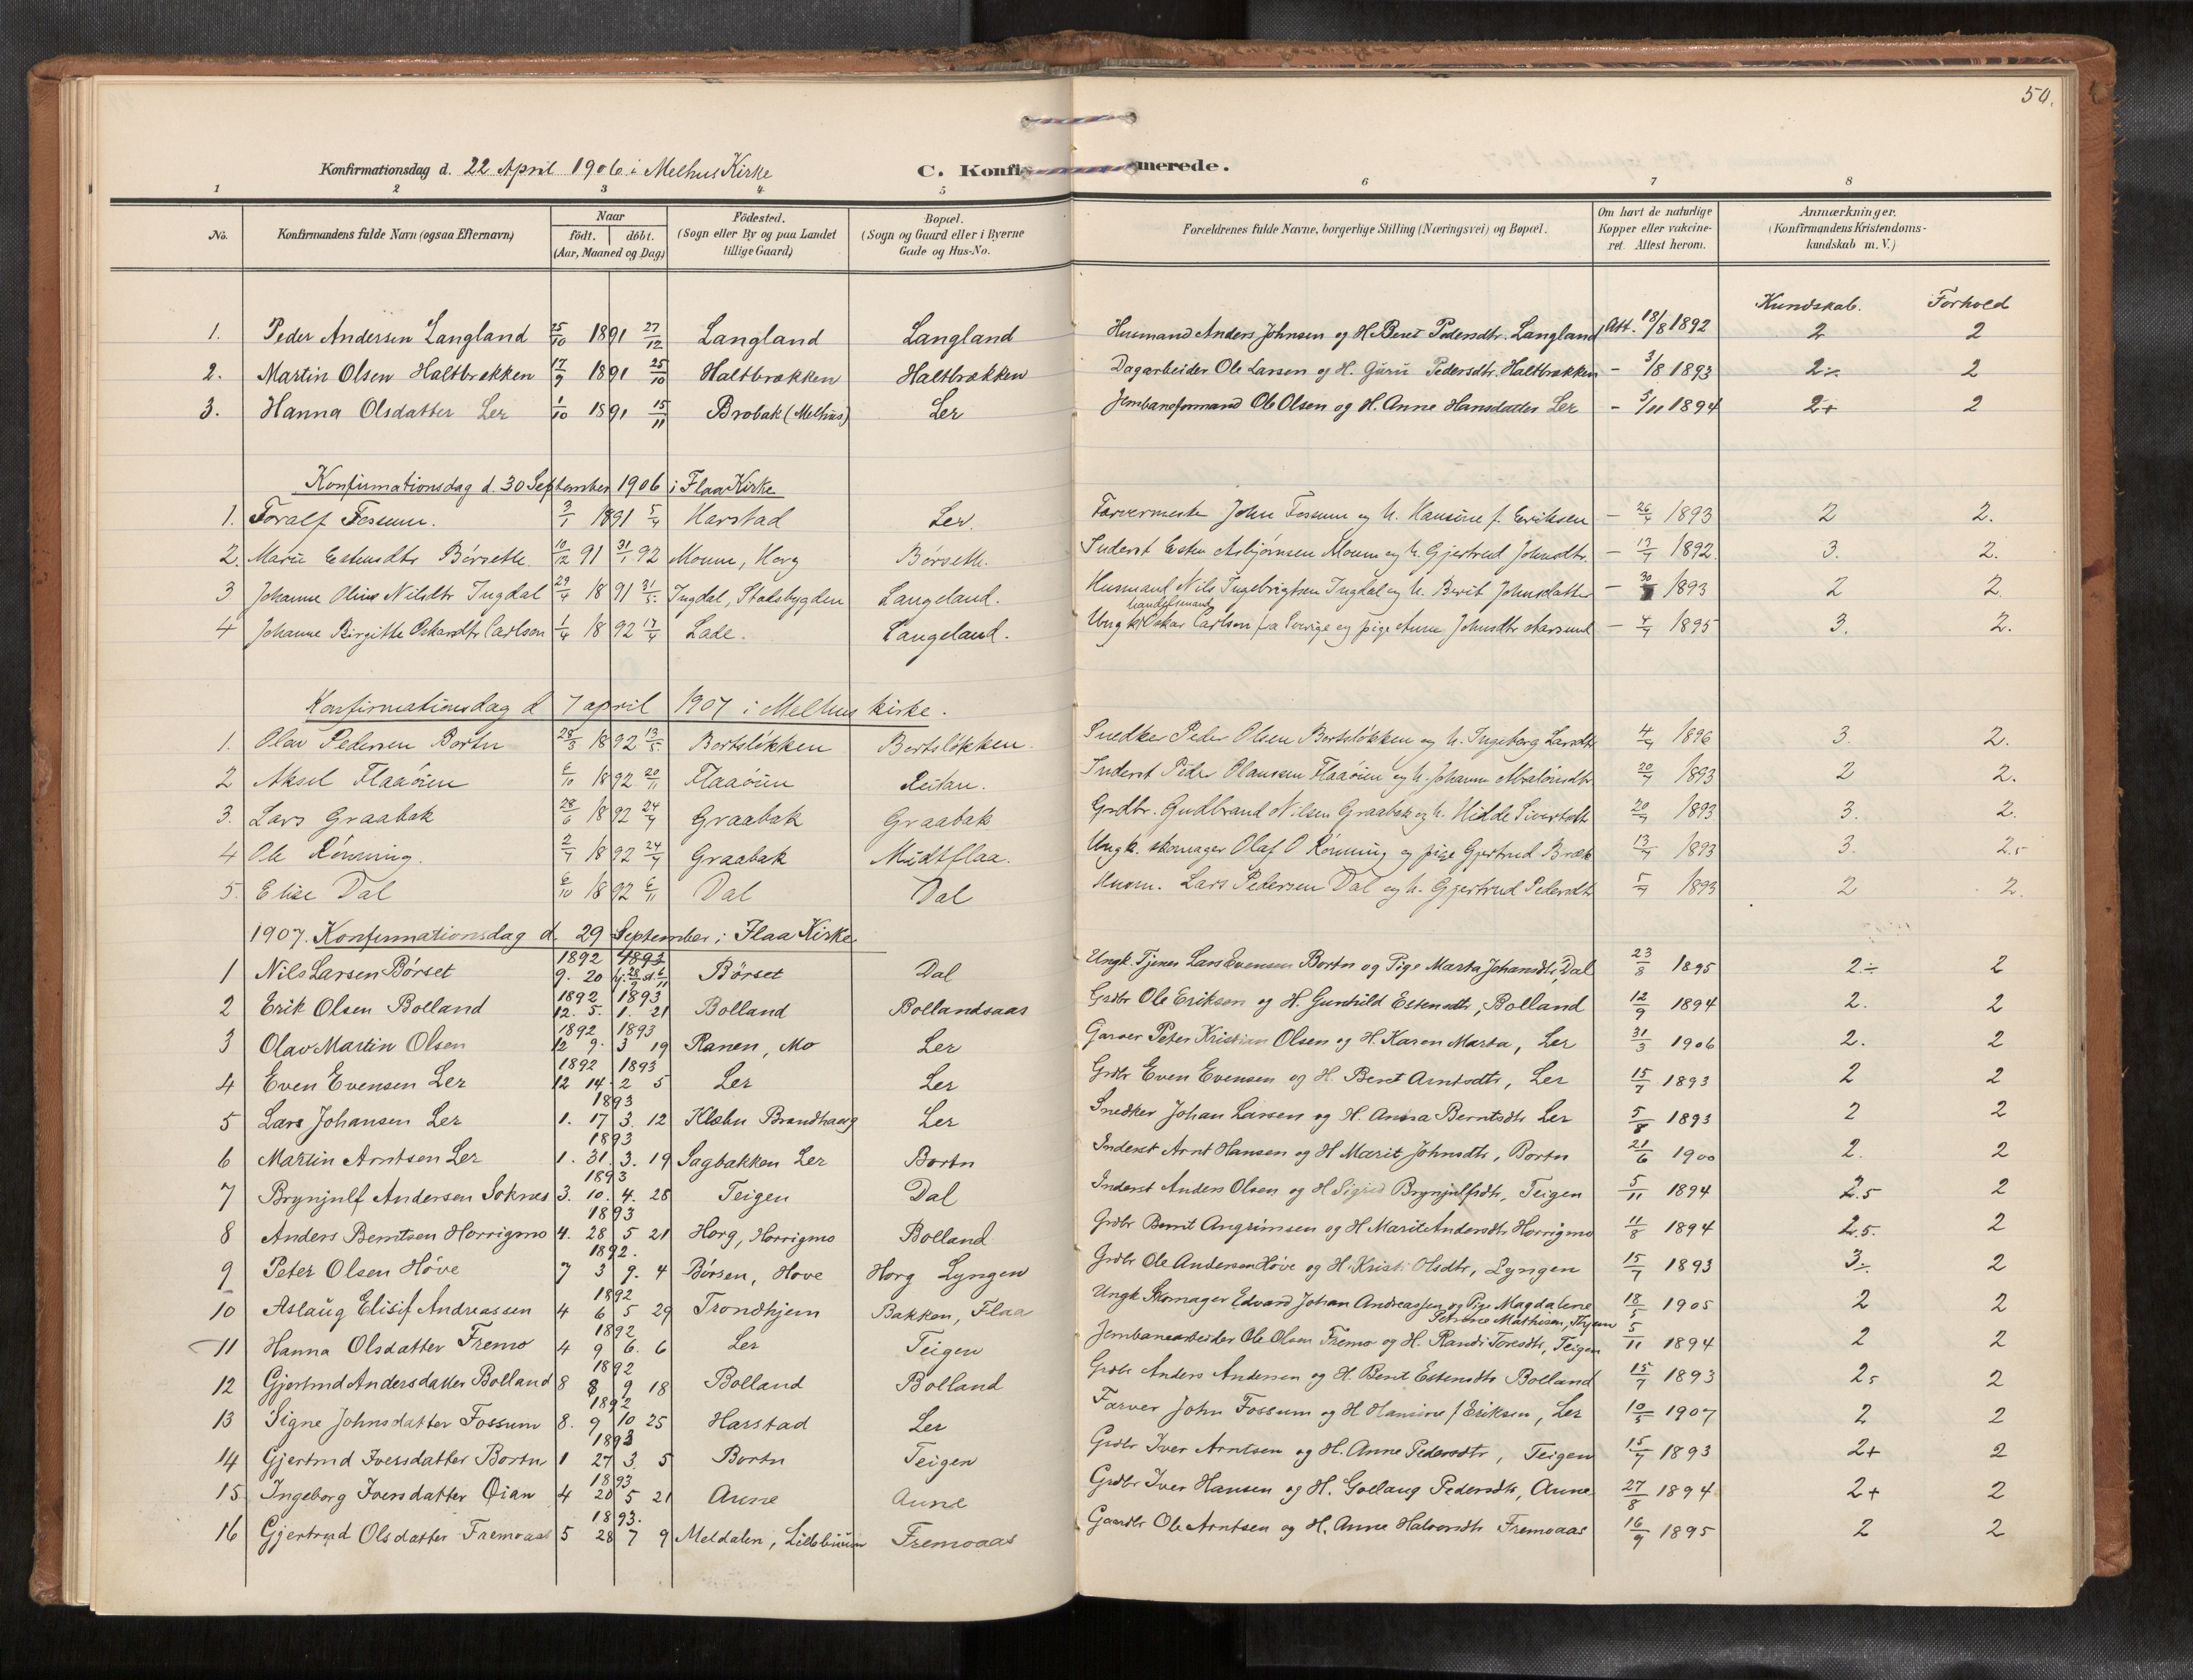 50.
Konfirmationsdag d. 22 April 1906 i Melhus Kirke C. Konfirmerede.
1 2 3 4 5 6 7 8
No. Konfirmandens fulde Navn (ogsaa Efternavn) Naar født. døbt. (Aar, Maaned og Dag) Födested. (Sogn eller By og paa Landet tillige Gaard) Bopæl. (Sogn og Gaard eller i Byerne Gade og Hus-No. Forældrenes fulde Navne, borgerlige Stilling (Næringsvei) og Bopæl. Om havt de naturlige Kopper eller vakcineret. Attest herom. Anmærkninger. (Konfirmandens Kristendomskundskab m. V.)
Kundskab. Forhold
1. Peder Andersen Langland 25/10 1891 27/12 Langland Langland Husmand Anders Johnsen og H. Beret Pedersdtr. Langland Att. 18/8 1892 2 2
2. Martin Olsen Haltbrækken 17/9 1891 25/10 Haltbrækken Haltbrækken Dagarbeider Ole Larsen og H. Guru Pedersdtr. Haltbrækken - 3/8 1893 2÷ 2
3. Hanna Olsdatter Ler 1/10 1891 15/11 Brobak (Melhus) Ler Jernbaneformand Ole Olsen og H. Anne Hansdatter Ler - 5/11 1894 2+ 2
Konfirmationsdag d. 30 September 1906 i Flaa Kirke
1. Toralf Fossum. 3/1 1891 5/4 Harstad Ler. Farvermester John Fossum og h. Hansine f. Eriksen - 26/4 1893 2 2.
2. Marie Estensdtr Børseth 10/12 91 31/1 92 Moum, Horg Børseth. Inderst Esten Asbjørnsen Moum og h. Gjertrud Johnsdtr. - 13/7 1892. 3. 2.
3 Johanne Oline Nilsdtr Ingdal 29/4 1891 31/5 Ingdal, Stadsbygden Langeland. Husmand Nils Ingebrigtsen Ingdal og h. Berit Johnsdatter - 30 1893 2 2.
4 Johanne Birgitte Oskarsdtr Carlson 1/4 1892 17/4 Lade. Langeland. Ungk. handelsmand Oskar Carlson fra Sverige og pige Anne Johnsdtr Aarsund - 4/7 1895 3. 2.
Konfirmationsdag d 7 april 1907 i Melhus kirke.
1. Olav Pedersen Bortn 28/3 1892 13/5 Bortsløkken Bortsløkken. Snedker Peder Olsen Bortsløkken og h. Ingeborg Larsdtr 4/7 1896 3. 2.
2 Aksel Flaaøien 6/10 1892 20/11 Flaaøien Reitan. Inderst Peder Olaussen Flaaøien og h. Johanna 20/7 1893 2 2.
3. Lars Graabak 28/6 1892 24/7 Graabak Graabak Grdbr. Gudbrand Nilsen Graabak og h. Hilde Sivertsdtr 20/7 1893 3. 2.
4 Ole Rönning. 2/7 1892 24/7 Graabak Midtflaa. Ungk. skomager Olaf O Rönning og pige Gjertrud Bræk 13/7 1893 3. 2.5
5. Elise Dal 6/10 1892 6/11 Dal Dal Husm. Lars Pedersen Dal og h. Gjertrud Pedersdtr 5/7 1893 2 2.
1907. Konfirmationsdag d. 29 September i Flaa Kirke
1 Nils Larsen Børset 1892 9. 20 1893 hj. 28/9 st. 6/11 Børset Dal Ungk. Tjener Lars Evensen Bortn og Pige Marta Johansdtr, Dal 23/8 1895 2÷ 2
2 Erik Olsen Bolland 1892 12. 5. 1893 1. 21 Bolland Bollandsaas Grdbr Ole Eriksen og H. Gunhild Estensdtr, Bolland 12/9 1894 2. 2
3 Olav Martin Olsen 1892 12 9. 1893 3 19 Ranen, Mo Ler Garver Peter Kristian Olsen og H. Karen Marta, Ler 31/3 1906 2. 2
4 Even Evensen Ler 1892 12 14. 1893 2 5 Ler Ler Grdbr Even Evensen og H. Beret Arntsdtr, Ler 15/7 1893 2 2
5 Lars Johansen Ler 1893 1. 17 3. 12 Klæbu Brandhaug Ler Snedker Johan Larsen og H. Anna Berntsdtr Ler 5/8 1893 2 2
6 Martin Arntsen Ler 1893 1. 31. 3. 19 Sagbakken Ler Bortn Inderst Arnt Hansen og H Marit Johnsdtr, Bortn 21/6 1900 2. 2
7 Brynjulf Andersen Soknes 1893 3. 10. 4. 28 Teigen Dal Inderst Anders Olsen og H Sigrid Brynjulfsdtr, Teigen 5/11 1894 2.5 2
8 Anders Berntsen Horrigmo 1893 4. 28 5 21 Horg, Horrigmo Bolland Grdbr Bernt Angrimsen og H Marit Andersdtr Horrigmo 11/8 1894 2.5. 2
9 Peter Olsen Høve 1892. 7 3 9. 4 Börsen, Hove Horg Lyngen Grdbr Ole Andersen Høve og H. Kristi Olsdtr, Lyngen 15/7 1893 3÷ 2
10 Aslaug Elisif Andreassen 1892 4 6 5 29 Trondhjem Bakken, Flaa Ungk Skomager Edvard Johan Andreassen og Pige Magdalene Petrine Mathisen, Thjem 18/5 1905 2 2
11 Hanna Olsdatter Fremo 1892 4 9 6. 6 Ler Teigen Jernbanearbeider Ole Olsen Fremo og H. Randi Toresdtr, Teigen 5/11 1894 2 2
12 Gjertrud Andersdatter Bolland 1892 8 8 9 18 Bolland Bolland Grdbr Anders Andersen og H. Beret Estensdtr Bolland 15/7 1893 2.5 2
13 Signe Johnsdatter Fossum 1892 8. 9 10 25 Harstad Ler Farver John Fossum og H Hansine f Eriksen, Ler 10/5 1907 2 2
14 Gjertrud Iversdatter Bortn 1893 1 27 3. 5 Bortn Teigen Grdbr Iver Arntsen og H. Anne Pedersdtr, Teigen 15/7 1893 2+ 2
15. Ingeborg Iversdatter Øian 1893 4 20 5 21 Aune Aune Grdbr Iver Hansen og H. Gollaug Pedersdtr, Aune 27/8 1894 2+ 2
16 Gjertrud Olsdatter Fremoaas 1893. 5 28 7 9 Meldalen, Fremoaas Gaardbr Ole Arntsen og H. Anne Halvorsdtr Fremoaas 16/9 1895 2 2